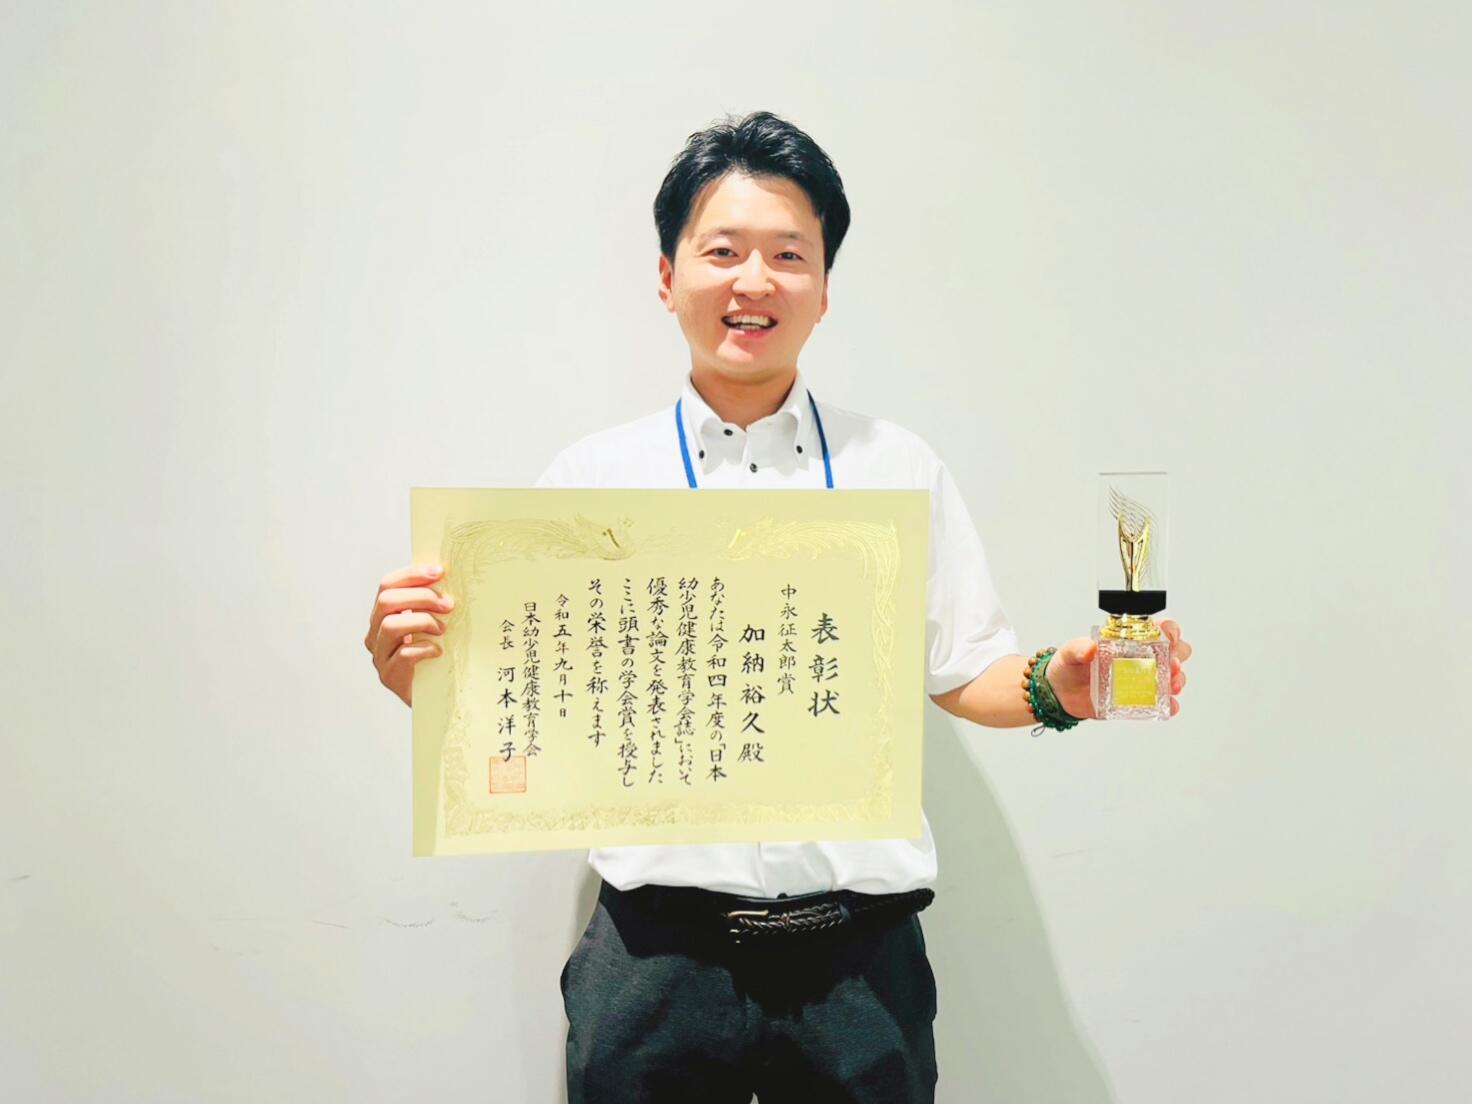 表彰状
中永征太郎賞
加納裕久殿
あなたは令和四年度の「日本
幼少児健康教育学会誌」において
優秀な論文を発表されました
ここに頭書の学会賞を授与し
その栄誉を称えます
令和五年九月十日
日本幼少児健康教育学会
会長 河本洋子